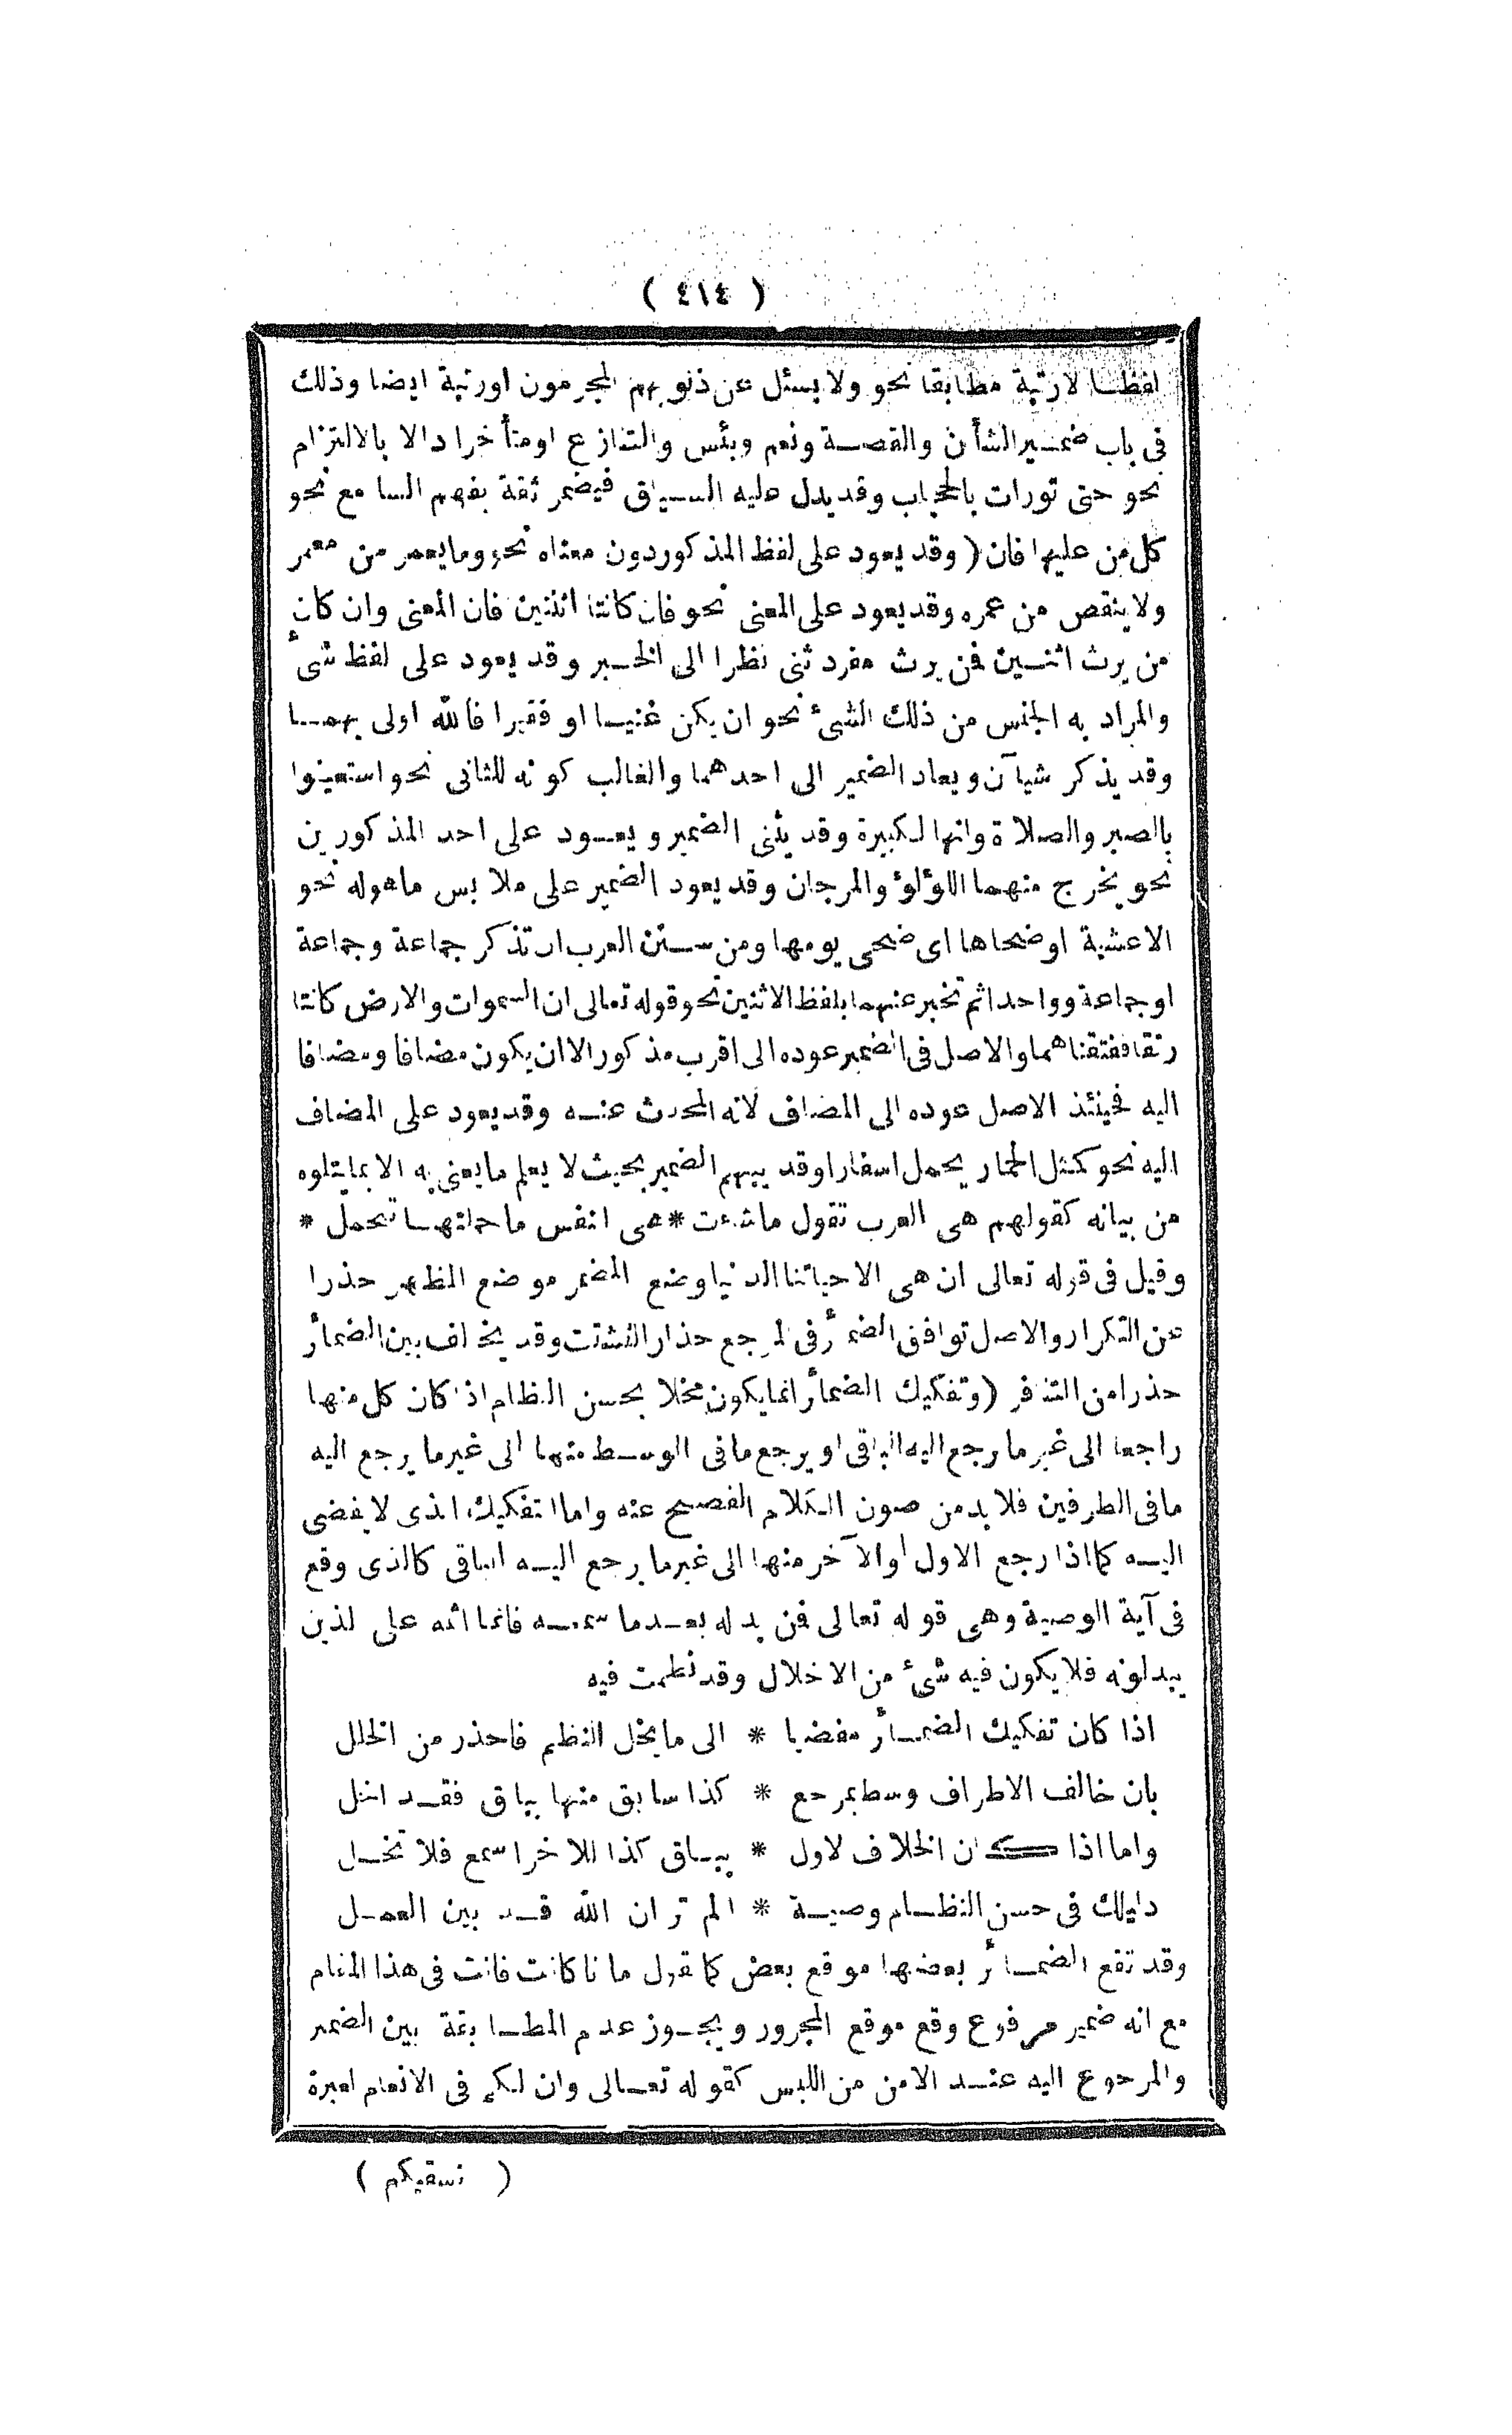 ( ٤١٤ )
لفظا لا رتبة مطابقا نحو ولا يسئل عن ذنوبهم المجرمون او رتبة ايضا وذلك
فى باب ضمير الشأن والقصة ونعم وبئس والتنازع او متأخرا دالا بالالتزام
نحو حتى تورات بالحجاب وقد يدل عليه السياق فيضمر ثقة بفهم السامع نحو
كل من عليها فان ( وقد يعود على لفظ المذكور دون معناه نحو وما يعمر من معمر
ولا ينقص من عمره وقد يعود على المعنى نحو فان كانتا اثنتين فان المعنى وان كان
من يرث اثنين فمن يرث مفرد ثنى نظرا الى الخبر وقد يعود على لفظ شئ
والمراد به الجنس من ذلك الشئ نحو ان يكن غنيا او فقيرا فالله اولى بهما
وقد يذكر شيآن ويعاد الضمير الى احدهما والغالب كونه للثانى نحو استعينوا
بالصبر والصلاة وانها لكبيرة وقد يثنى الضمير ويعود على احد المذكورين
نحو يخرج منهما اللؤلؤ والمرجان وقد يعود الضمير على ملابس ما هو له نحو
الا عشية او ضحاها اى ضحى يومها ومن سنن العرب ان تذكر جماعة وجماعة
او جماعة وواحدا ثم تخبر عنهما بلفظ الاثنين نحو قوله تعالى ان السموات والارض كانتا
رتقا ففتقناهما والاصل فى الضمير عوده الى اقرب مذكور الا ان يكون مضافا ومضافا
اليه فحينئذ الاصل عوده الى المضاف لانه المحدث عنه وقد يعود على المضاف
اليه نحو كمثل الحمار يحمل اسفارا وقد يبهم الضمير بحيث لا يعلم ما يعنى به الا بما يتلوه
من بيانه كقولهم هى العرب تقول ما شئت * هى النفس ما حملتها تتحمل *
وقيل فى قوله تعالى ان هى الا حياتنا الدنيا وضع المضمر موضع المظهر حذرا
عن التكرار والاصل توافق الضمائر فى المرجع حذار التشتت وقد يخالف بين الضمائر
حذرا من التنافر ( وتفكيك الضمائر انما يكون مخلا بحسن النظام اذا كان كل منها
راجعا الى غير ما رجع اليه الباقى او يرجع ما فى الوسط منها الى غير ما يرجع اليه
ما فى الطرفين فلا بد من صون الكلام الفصيح عنه واما التفكيك الذى لا يفضى
اليه كما اذا رجع الاول او الآخر منها الى غير ما يرجع اليه الباقى كالذى وقع
فى آية الوصية وهى قوله تعالى فمن بدله بعد ما سمعه فانما اثمه على الذين
يبدلونه فلا يكون فيه شئ من الاخلال وقد نظمت فيه
اذا كان تفكيك الضمائر مفضيا * الى ما يخل النظم فاحذر من الخلل
بان خالف الاطراف وسط بمرجع * كذا سابق منها بباق فقد انثل
واما اذا كان الخلاف لاول * بباق كذا للاخر اسمع فلا تخل
دليلك فى حسن النظام وصية * الم تر ان الله قد بين العمل
وقد تقع الضمائر بعضها موقع بعض كما تقول ما انا كانت فانت فى هذا المقام
مع انه ضمير مرفوع وقع موقع المجرور ويجوز عدم المطابقة بين الضمير
والمرجوع اليه عند الامن من اللبس كقوله تعالى وان لكم فى الانعام لعبرة
( نسقيكم )